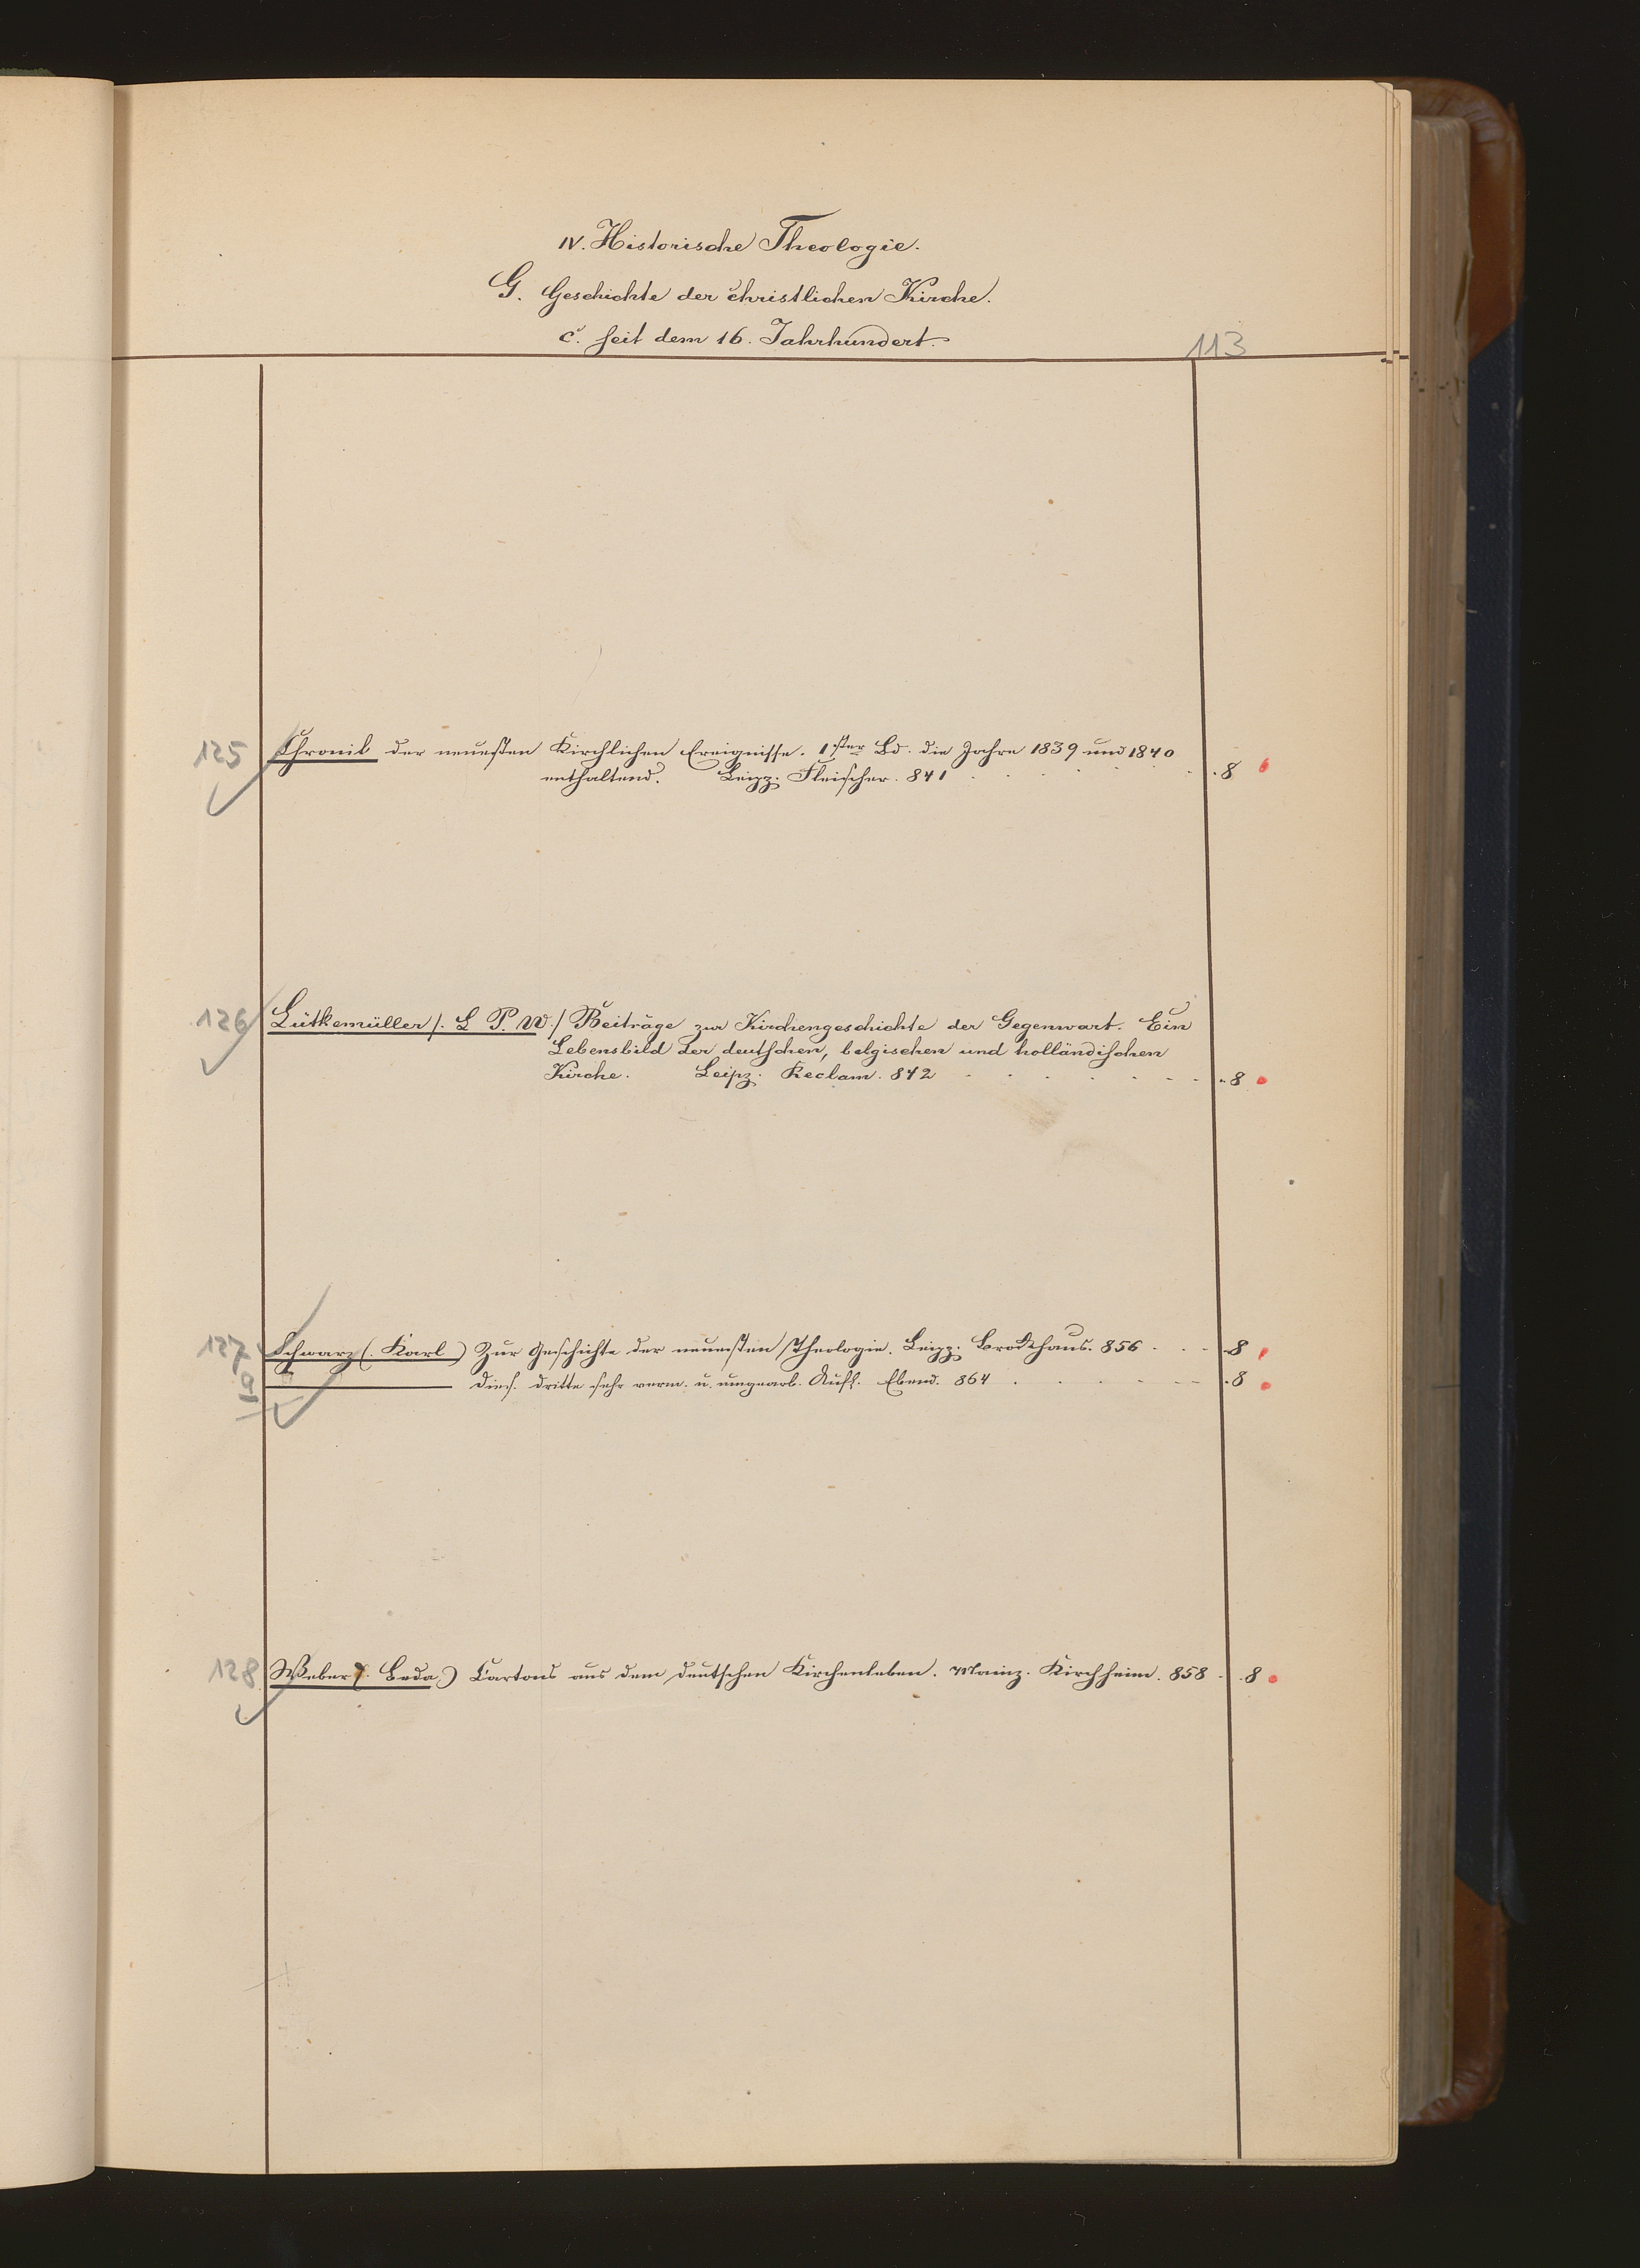 IV. Historische Theologie.
G. Geschichte der christlichen Kirche.
c. seit dem 16. Jahrhundert.
113
125 Chronik der neuesten Kirchlichen Ereignisse. 1ster Bd. die Jahre 1839 und 1840
enthaltend. Leipz. Fleischer. 841 . . . . . . 8
126 Lütkemüller /. L P. W./ Beiträge zur Kirchengeschichte der Gegenwart. Ein
Lebensbild der deutschen, belgischen und holländischen
Kirche. Leipz. Reclam. 842 . . . . . . 8
127 Schwarz (. Karl ) Zur Geschichte der neuesten Theologie. Leipz. Brockhaus. 856 . . . 8
a ——— Dies. dritte sehr verm. u. umgearb. Aufl. Ebend. 864 . . . . . . 8
128 Weber (. Beda.) Cartons aus dem deutschen Kirchenleben. Mainz. Kirchheim. 858 . . 8